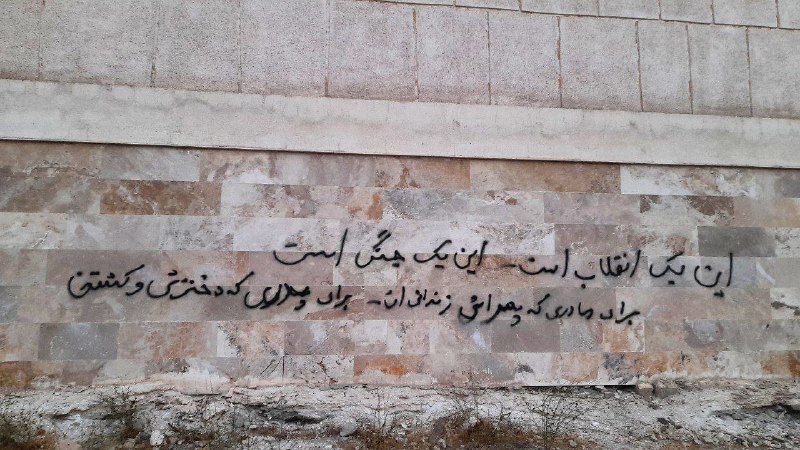 این یک انقلاب است - این یک جنگ است
برای مادری که پسراش زندانی ان - برای پدری که دخترش و کشتن